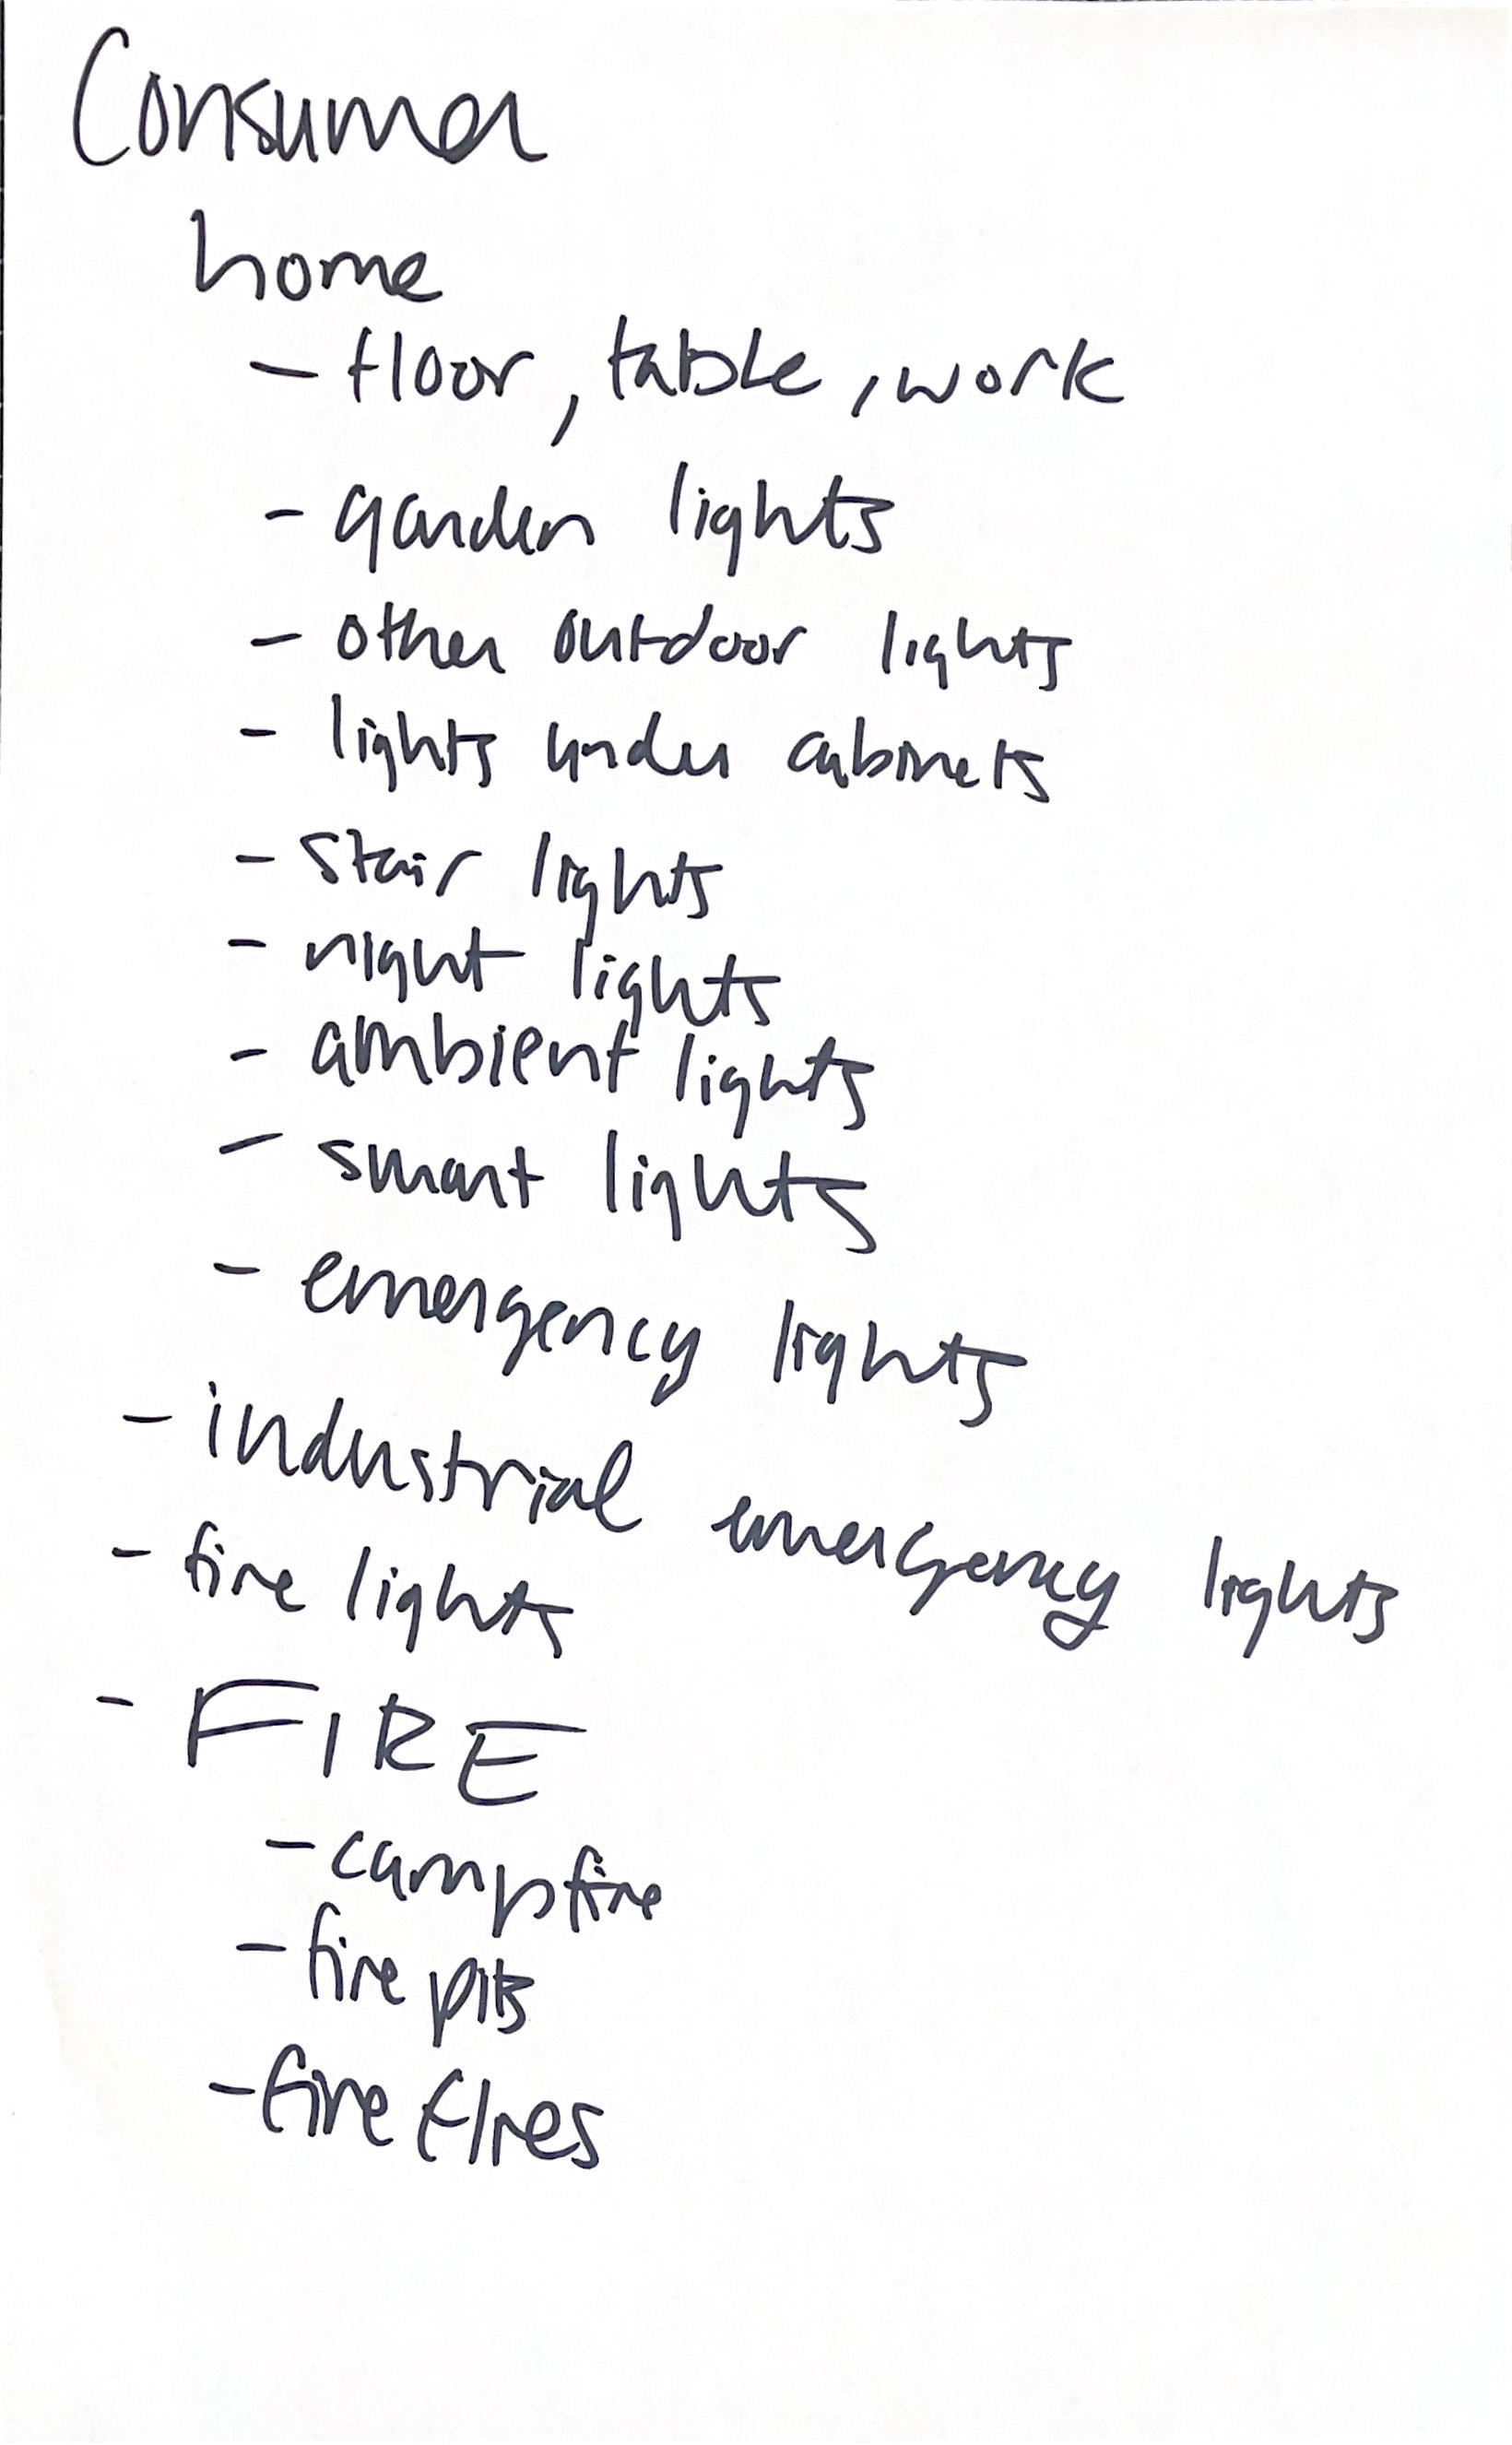 Consumer
home
- floor, table, work
- garden lights
- other outdoor lights
- lights under cabinets
- stair lights
- night lights
- ambient lights
- smart lights
- emergency lights
- industrial emergency lights
- fire lights
- FIRE
- campfire
- fire pits
- fire flies